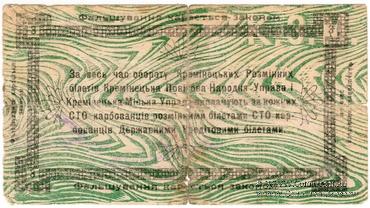 Фальшування карається законом.
За весь час обороту Кремінецьких Розмінних
білетів Кремінецька Повітова Народня Управа і
Кремінецька Міська Управа виплачують за кожних
СТО карбованців розмінними білетами СТО кар-
бованців Державними Кредитовими білетами.
Фальшування карається законом.